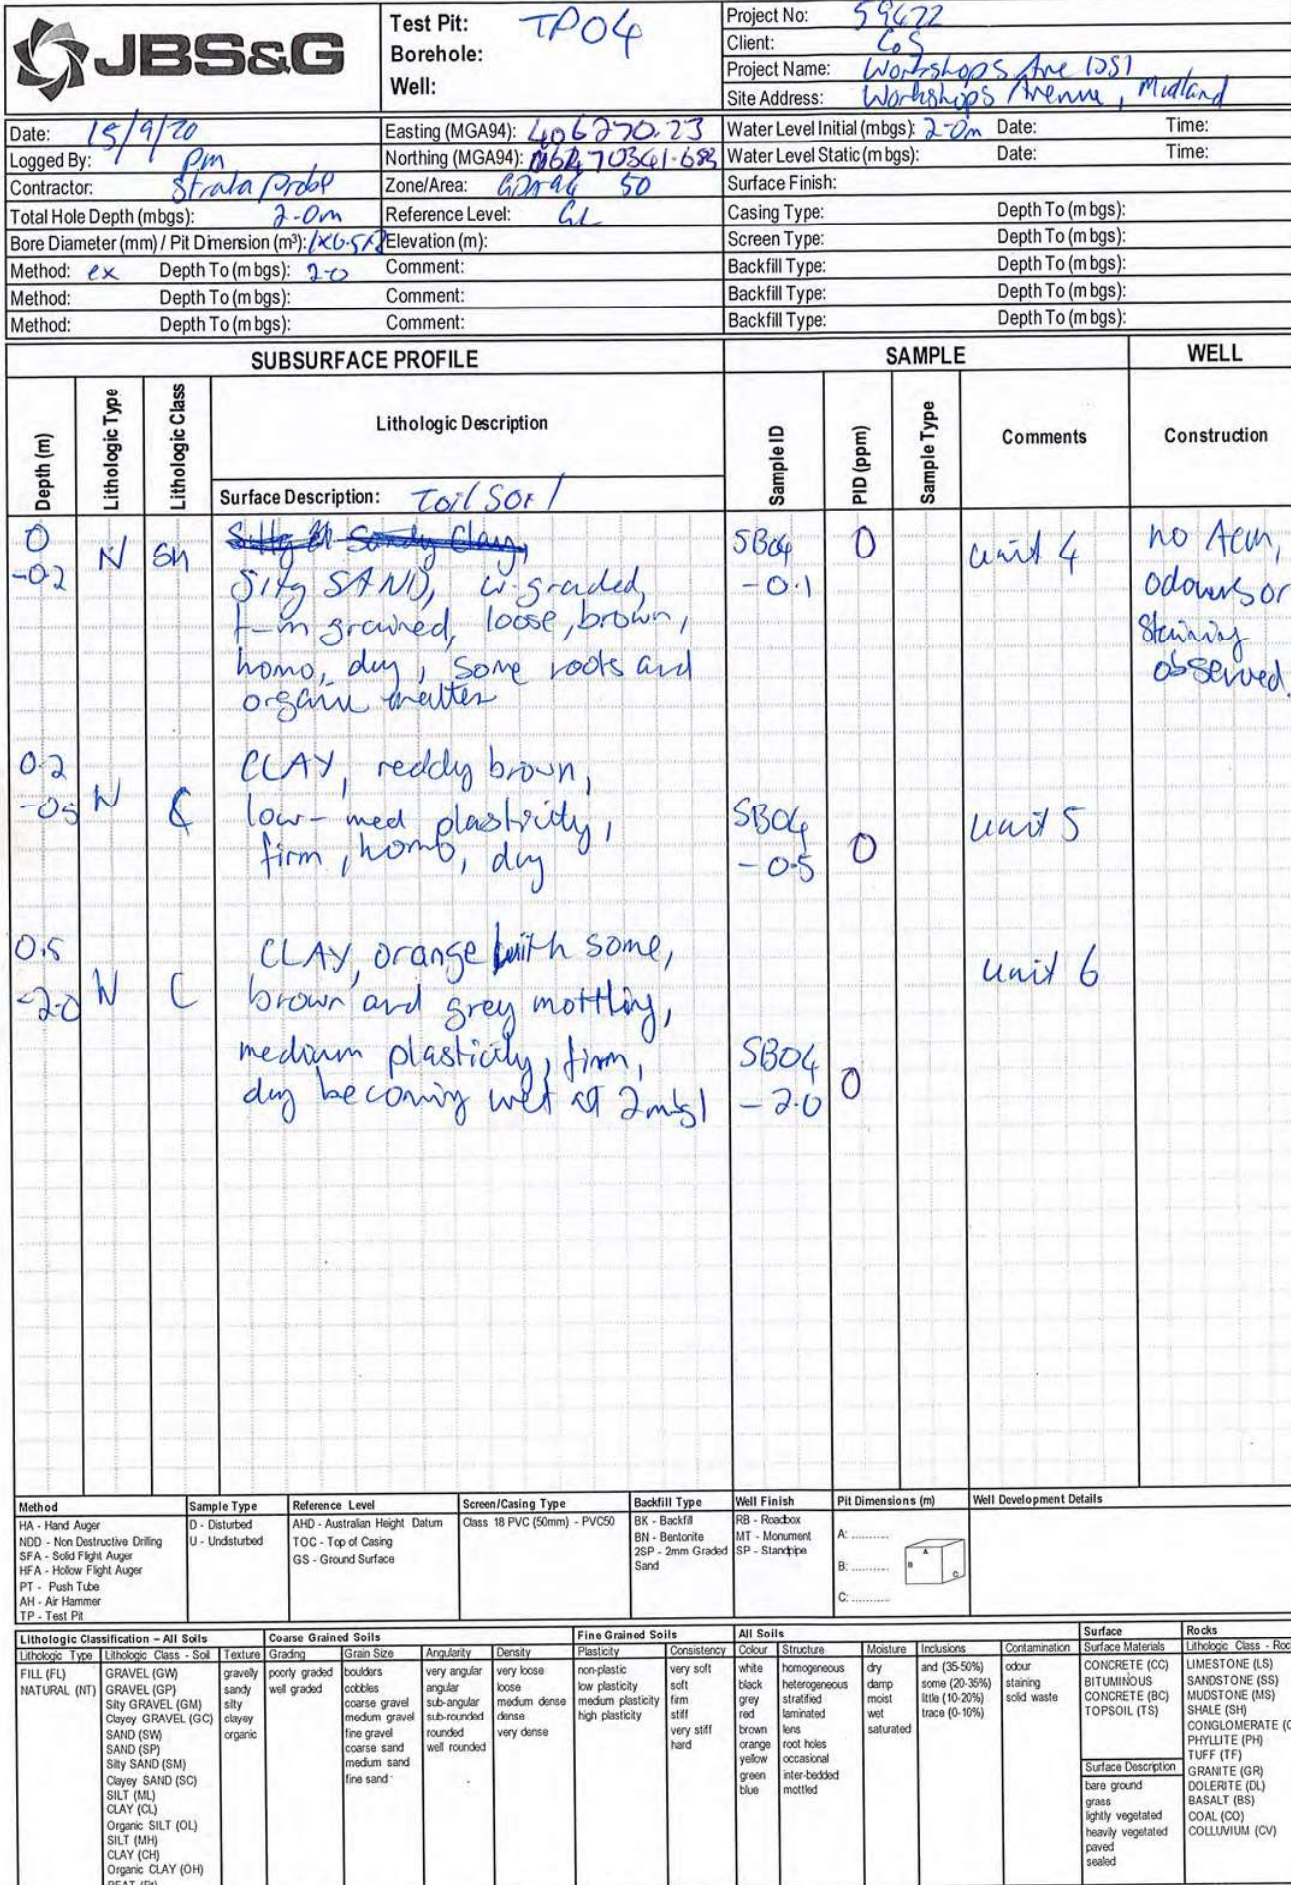 JBS&G
Test Pit: TP04
Borehole:
Well:
Project No: 59422
Client: CoS
Project Name: Workshops Ave DSI
Site Address: Workshops Avenue, Midland
Date: 15/9/20
Easting (MGA94): 406270.23
Water Level Initial (mbgs): 2-0m Date: Time:
Logged By: PM
Northing (MGA94):
Water Level Static (mbgs): Date: Time:
Contractor: Strata Probe
Zone/Area: GDA94 50
Surface Finish:
Total Hole Depth (mbgs): 2-0m
Reference Level: GL
Casing Type: Depth To (m bgs):
Bore Diameter (mm) / Pit Dimension (m³):
Elevation (m):
Screen Type: Depth To (m bgs):
Method: ex Depth To (m bgs): 2-0 Comment:
Backfill Type: Depth To (m bgs):
Method: Depth To (m bgs): Comment:
Backfill Type: Depth To (m bgs):
Method: Depth To (m bgs): Comment:
Backfill Type: Depth To (m bgs):
SUBSURFACE PROFILE
SAMPLE
WELL
Depth (m)
Lithologic Type
Lithologic Class
Lithologic Description
Surface Description:
Sample ID
PID (ppm)
Sample Type
Comments
Construction
0
-0.2
N
SM
Silty SAND, w-graded,
f-m grained, loose, brown,
homo, dry, some roots and
organic matter
SB04
-0.1
0
unit 4
no ACM,
odours or
staining
observed.
0.2
-0.5
N
C
CLAY, reddy brown,
low-med plasticity,
firm, homo, dry
SB04
-0.5
0
unit 5
0.5
-2.0
N
C
CLAY, orange with some,
brown and grey mottling,
medium plasticity, firm,
dry becoming wet at 2mbgl
SB04
-2.0
0
unit 6
Method
HA - Hand Auger
NDD - Non Destructive Drilling
SFA - Solid Flight Auger
HFA - Hollow Flight Auger
PT - Push Tube
AH - Air Hammer
TP - Test Pit
Sample Type
D - Disturbed
U - Undisturbed
Reference Level
AHD - Australian Height Datum
TOC - Top of Casing
GS - Ground Surface
Screen/Casing Type
Class 18 PVC (50mm) - PVC50
Backfill Type
BK - Backfill
BN - Bentonite
2SP - 2mm Graded
Sand
Well Finish
RB - Roadbox
MT - Monument
SP - Standpipe
Pit Dimensions (m)
A: ...........
B: ...........
C: ...........
A
B
C
Well Development Details
Lithologic Classification – All Soils
Lithologic Type
FILL (FL)
NATURAL (NT)
Lithologic Class - Soil
GRAVEL (GW)
GRAVEL (GP)
Silty GRAVEL (GM)
Clayey GRAVEL (GC)
SAND (SW)
SAND (SP)
Silty SAND (SM)
Clayey SAND (SC)
SILT (ML)
CLAY (CL)
Organic SILT (OL)
SILT (MH)
CLAY (CH)
Organic CLAY (OH)
Texture
gravely
sandy
silty
clayey
organic
Coarse Grained Soils
Grading
poorly graded
well graded
Grain Size
boulders
cobbles
coarse gravel
medum gravel
fine gravel
coarse sand
medium sand
fine sand
Angularity
very angular
angular
sub-angular
sub-rounded
rounded
well rounded
Density
very loose
loose
medium dense
dense
very dense
Fine Grained Soils
Plasticity
non-plastic
low plasticity
medium plasticity
high plasticity
Consistency
very soft
soft
firm
stiff
very stiff
hard
All Soils
Colour
white
black
grey
red
brown
orange
yellow
green
blue
Structure
homogeneous
heterogeneous
stratified
laminated
lens
root holes
occasional
inter-bedded
mottled
Moisture
dry
damp
moist
wet
saturated
Inclusions
and (35-50%)
some (20-35%)
little (10-20%)
trace (0-10%)
Contamination
odour
staining
solid waste
Surface
Surface Materials
CONCRETE (CC)
BITUMINOUS
CONCRETE (BC)
TOPSOIL (TS)
Surface Description
bare ground
grass
lightly vegetated
heavily vegetated
paved
sealed
Rocks
Lithologic Class - Rock
LIMESTONE (LS)
SANDSTONE (SS)
MUDSTONE (MS)
SHALE (SH)
CONGLOMERATE (C
PHYLLITE (PH)
TUFF (TF)
GRANITE (GR)
DOLERITE (DL)
BASALT (BS)
COAL (CO)
COLLUVIUM (CV)